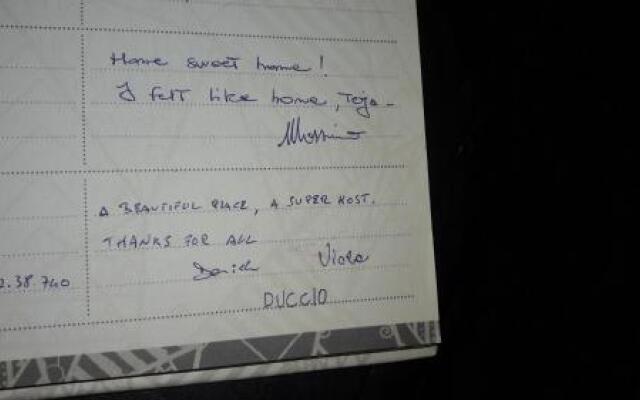 Home sweet home!
I felt like home, Teja -
Massimo
A BEAUTIFUL PLACE, A SUPER HOST.
THANKS FOR ALL
Viola
DUCCIO
.38.740